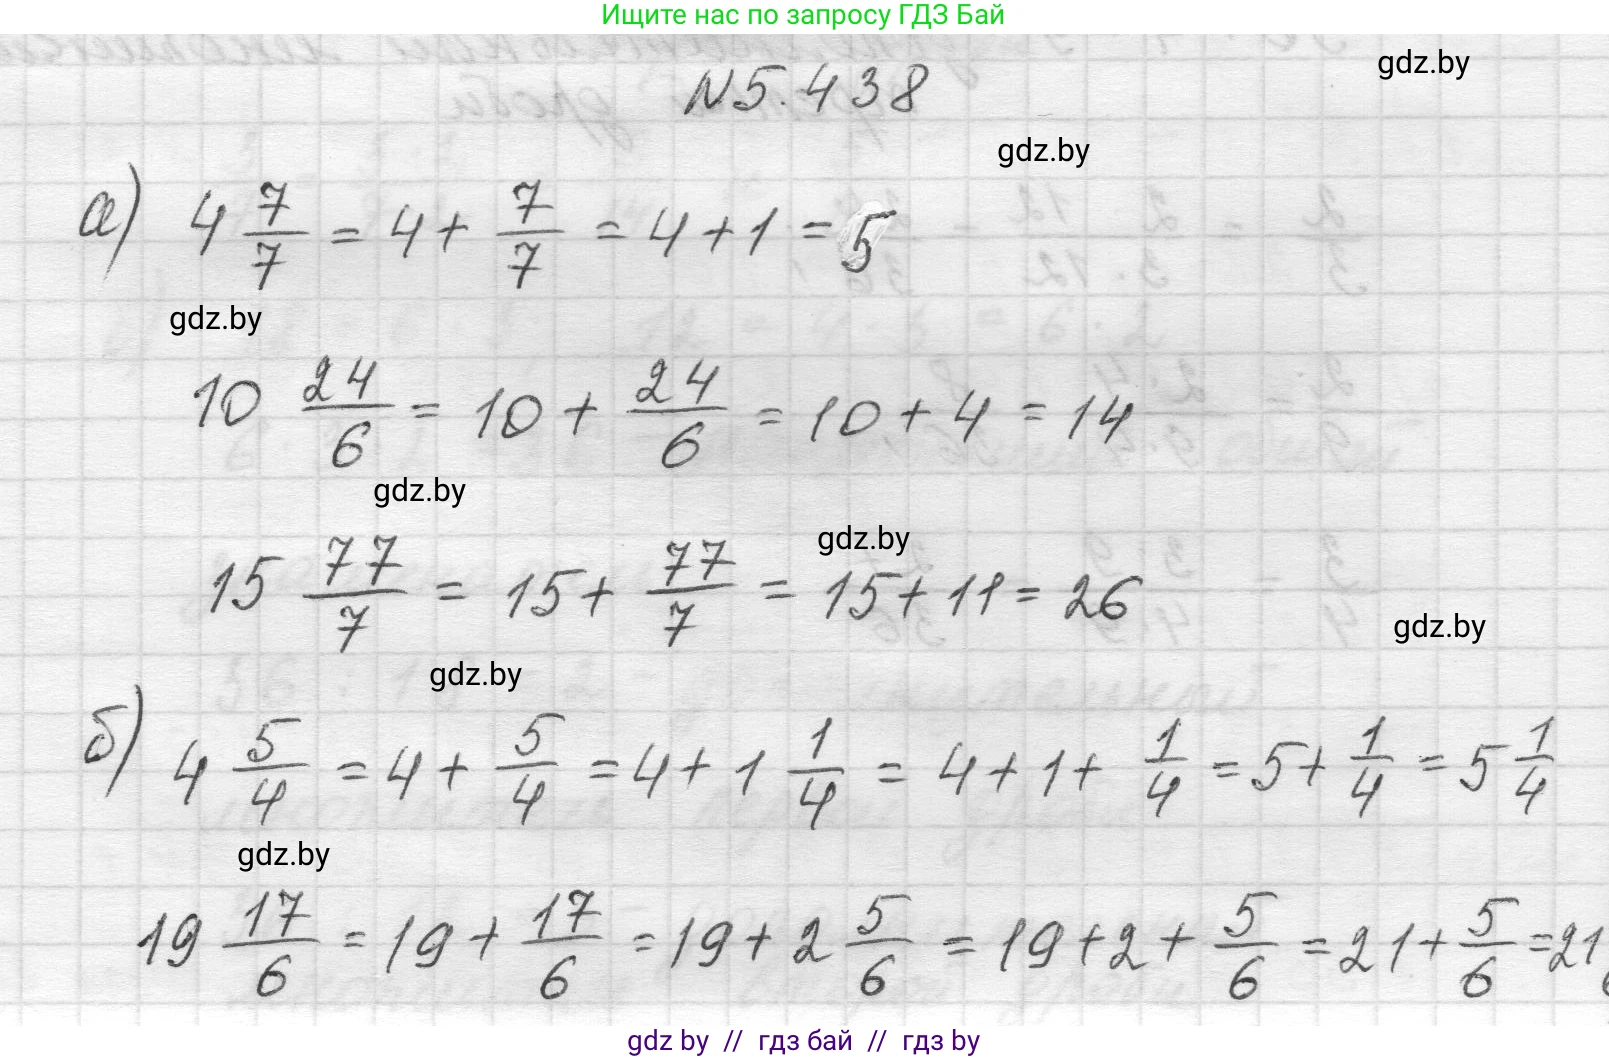 Ищите нас по запросу ГДЗ Бай
gdz.by
N 5.438
gdz.by
а) 4 7/7 = 4 + 7/7 = 4 + 1 = 5
gdz.by
10 24/6 = 10 + 24/6 = 10 + 4 = 14
gdz.by
gdz.by
15 77/7 = 15 + 77/7 = 15 + 11 = 26
gdz.by
gdz.by
б) 4 5/4 = 4 + 5/4 = 4 + 1 1/4 = 4 + 1 + 1/4 = 5 + 1/4 = 5 1/4
gdz.by
19 17/6 = 19 + 17/6 = 19 + 2 5/6 = 19 + 2 + 5/6 = 21 + 5/6 = 21
gdz by // гдз бай // гдз by